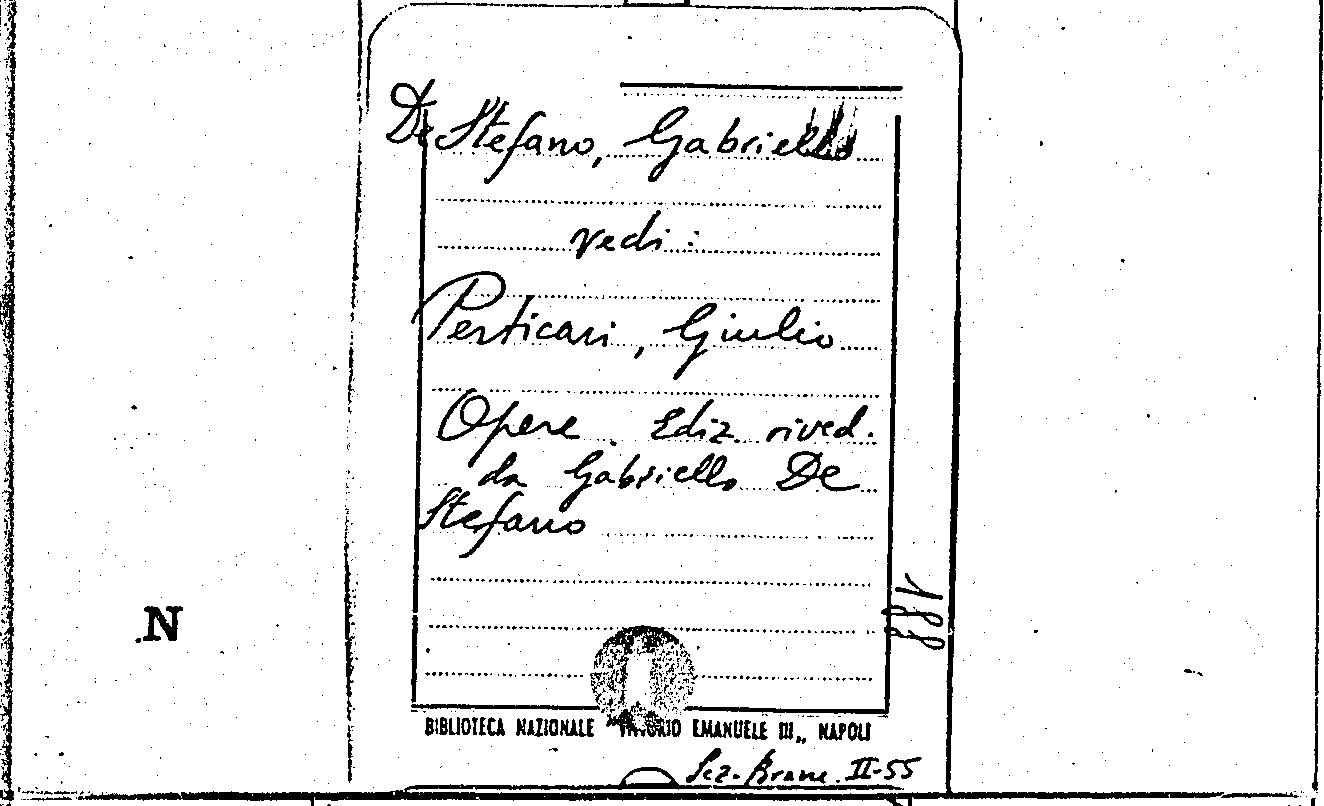 De Stefano, Gabriello
vedi:
Perticari, Giulio
Opere. Ediz. rived.
da Gabriello De
Stefano
188
N
BIBLIOTECA NAZIONALE "VITTORIO EMANUELE III„ NAPOLI
Sez. Branc. II-55